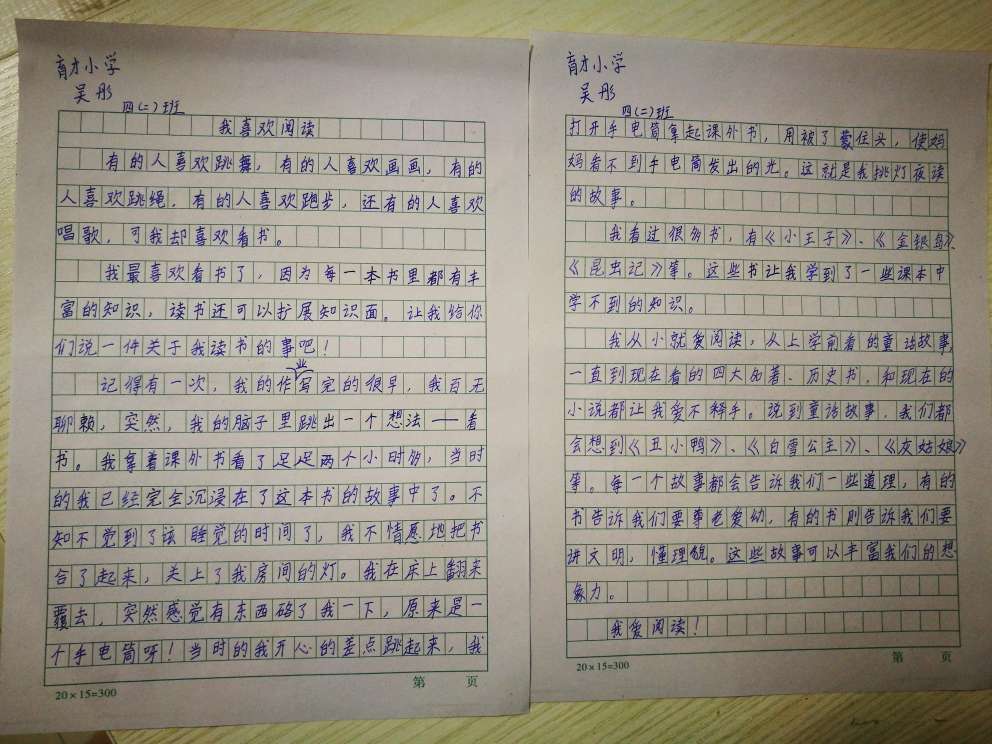 育才小学
吴彤
四(二)班
我喜欢阅读
有的人喜欢跳舞，有的人喜欢画画，有的
人喜欢跳绳，有的人喜欢跑步，还有的人喜欢
唱歌，可我却喜欢看书。
我最喜欢看书了，因为每一本书里都有丰
富的知识，读书还可以扩展知识面。让我给你
们说一件关于我读书的事吧！
记得有一次，我的作业写完的很早，我百无
聊赖，突然，我的脑子里跳出一个想法——看
书。我拿着课外书看了足足两个小时多，当时
的我已经完全沉浸在了这本书的故事中了。不
知不觉到了该睡觉的时间了，我不情愿地把书
合了起来，关上了我房间的灯。我在床上翻来
覆去，突然感觉有东西硌了我一下，原来是一
个手电筒呀！当时的我开心的差点跳起来，我
20×15=300
第 页
育才小学
吴彤
四(二)班
打开手电筒拿起课外书，用被子蒙住头，使妈
妈看不到手电筒发出的光。这就是我挑灯夜读
的故事。
我看过很多书，有《小王子》、《金银岛》、
《昆虫记》等。这些书让我学到了一些课本中
学不到的知识。
我从小就爱阅读，从上学前看的童话故事，
一直到现在看的四大名著、历史书，和现在的
小说都让我爱不释手。说到童话故事，我们都
会想到《丑小鸭》、《白雪公主》、《灰姑娘》
等。每一个故事都会告诉我们一些道理，有的
书告诉我们要尊老爱幼，有的书则告诉我们要
讲文明，懂理貌。这些故事可以丰富我们的想
象力。
我爱阅读！
20×15=300
第 页